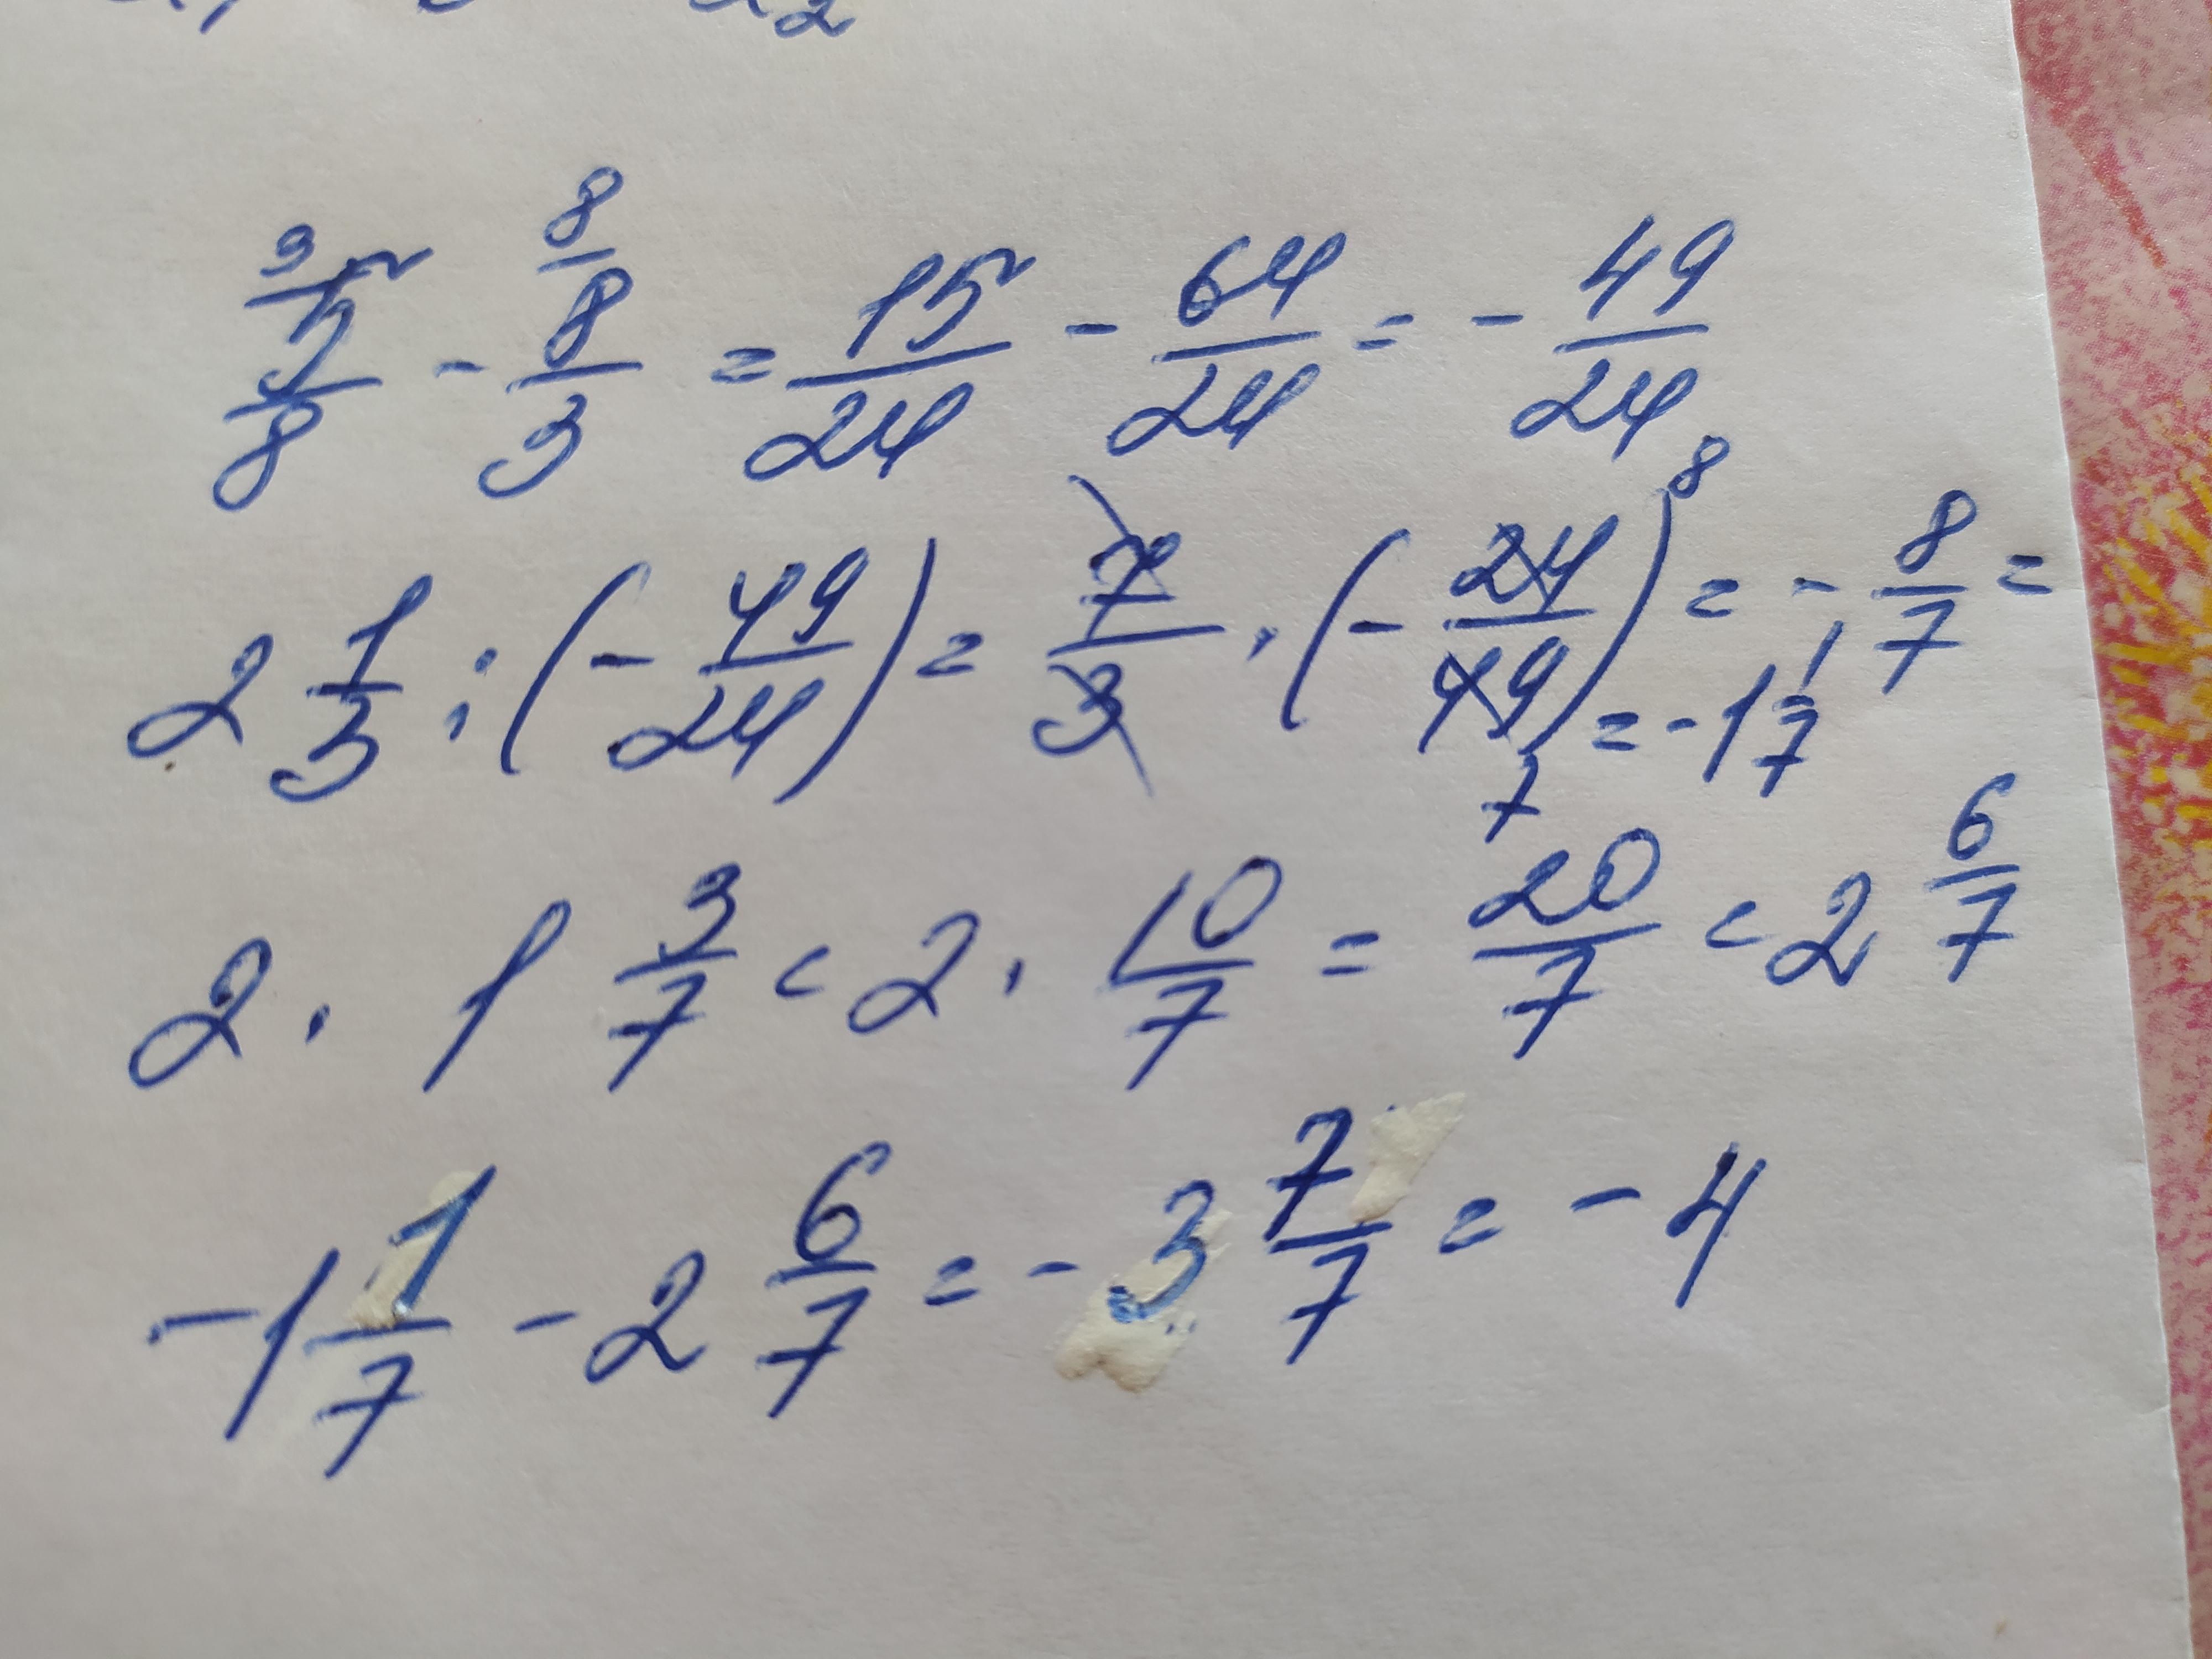 3/5/8 - 8/8/3 = 15/24 - 64/24 = - 49/24
2 1/3 : (- 49/24) = 7/3 · (- 24/49) 8 7 = - 8/7 = = -1 1/7
2 · 1 3/7 = 2 · 10/7 = 20/7 = 2 6/7
-1 1/7 - 2 6/7 = - 3 7/7 = - 4